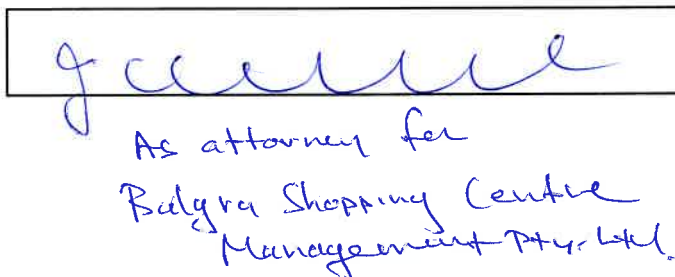 As attorney for
Balgra Shopping Centre
Management Pty. Ltd.